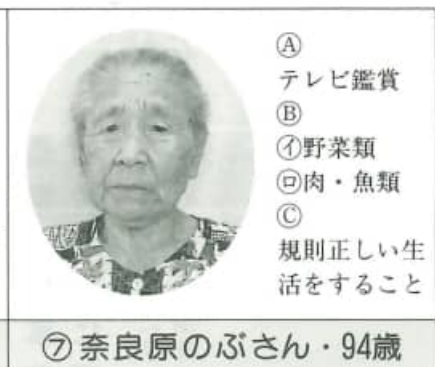 Ⓐ
テレビ鑑賞
Ⓑ
㋑野菜類
㋺肉・魚類
Ⓒ
規則正しい生
活をすること
⑦奈良原のぶさん・94歳